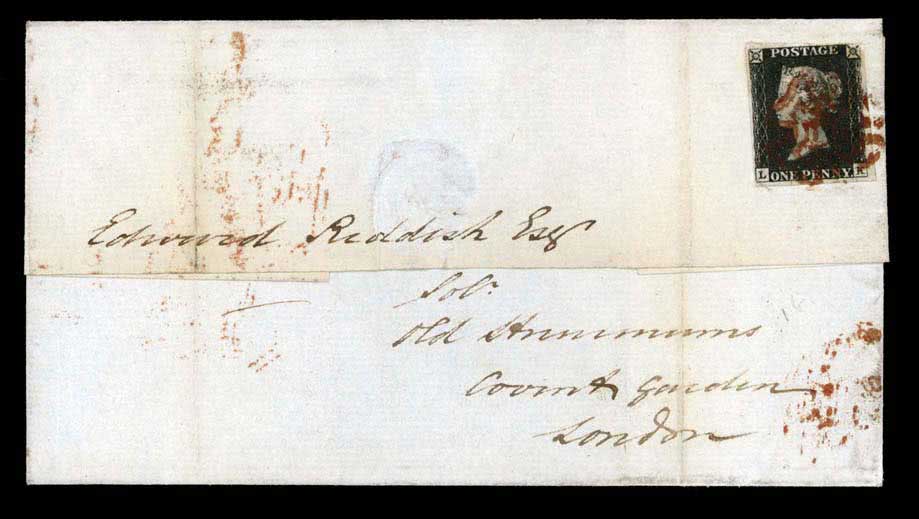 POSTAGE
L ONE PENNY K
Edward Reddish Esqr
Solr
Old Hummums
Covent Garden
London
16